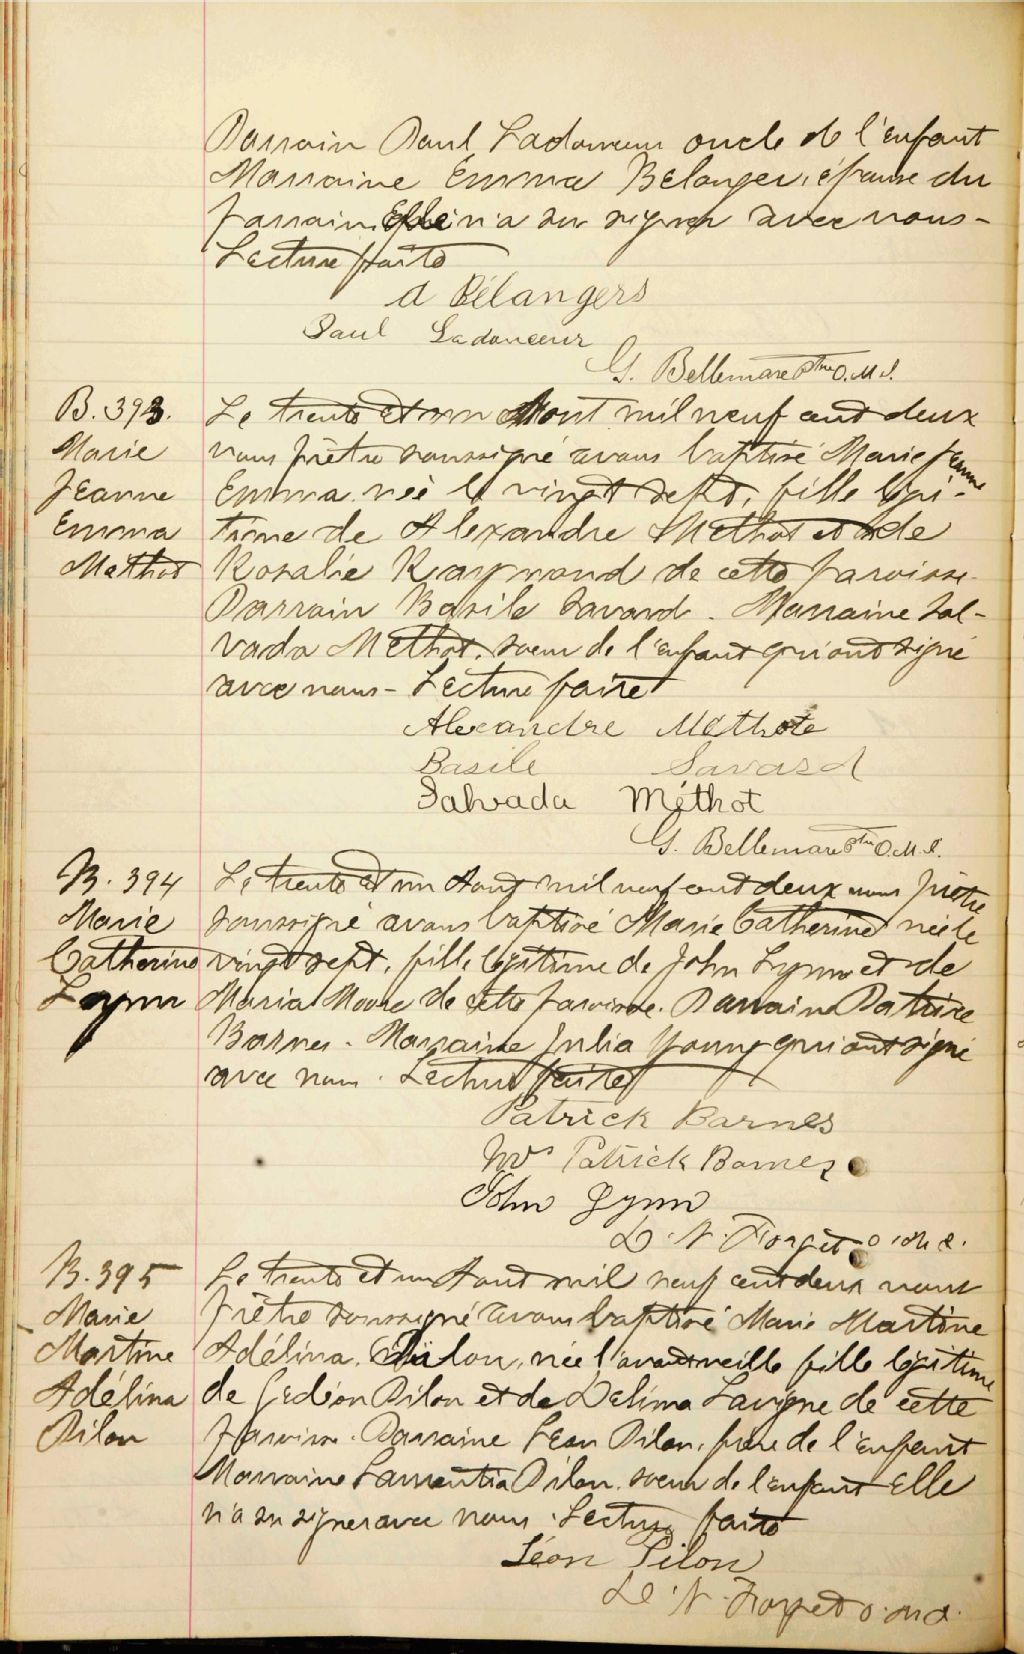 Parrain Paul Ladouceur oncle de l'enfant
Marraine Emma Belanger, épouse du
parrain Elle n'a su signer avec nous –
Lecture faite
A Bélangers
Paul Ladouceur
G. Bellemare Ptre O.M.I.
B. 393.
Marie
Jeanne
Emma
Méthot
Le trente et un Août mil neuf cent deux
nous prêtre soussigné avons baptisé Marie Jeanne
Emma née le vingt sept, fille légi-
time de Alexandre Méthot et de
Rosalie Raymond de cette paroisse.
Parrain Basile Savard. Marraine Sal-
vada Méthot, soeur de l'enfant qui ont signé
avec nous – Lecture faite
Alexandre Méthote
Basile Savard
Salvada Méthot
G. Bellemare Ptre O.M.I.
B. 394
Marie
Catherine
Lynn
Le trente et un Aout mil neuf cent deux nous prêtre
soussigné avons baptisé Marie Catherine née le
vingt sept, fille légitime de John Lynn et de
Maria Moore de cette paroisse. Parrain Patrice
Barnes. Marraine Julia Young qui ont signé
avec nous. Lecture faite
Patrick Barnes
Mrs Patrick Barnes
John Lynn
L. N. Forget o.m.i.
B. 395
Marie
Martine
Adélina
Pilon
Le trente et un Aout mil neuf cent deux nous
prêtre soussigné avons baptisé Marie Martine
Adélina Pilon, née l'avant veille fille légitime
de Gédéon Pilon et de Delima Lavigne de cette
paroisse. Parraine Léon Pilon, frère de l'enfant
Marraine Laurentia Pilon, soeur de l'enfant Elle
n'a su signer avec nous. Lecture faite
Léon Pilon
L. N. Forget o.m.i.